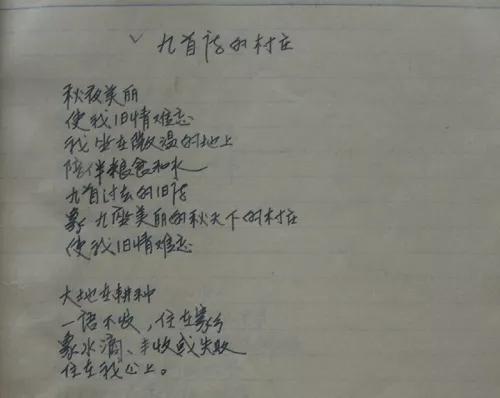 九首诗的村庄
秋夜美丽
使我旧情难忘
我坐在微温的地上
陪伴粮食和水
九首过去的旧诗
象九座美丽的秋天下的村庄
使我旧情难忘
大地在耕种
一语不发,住在家乡
象水滴、丰收或失败
住在我心上。